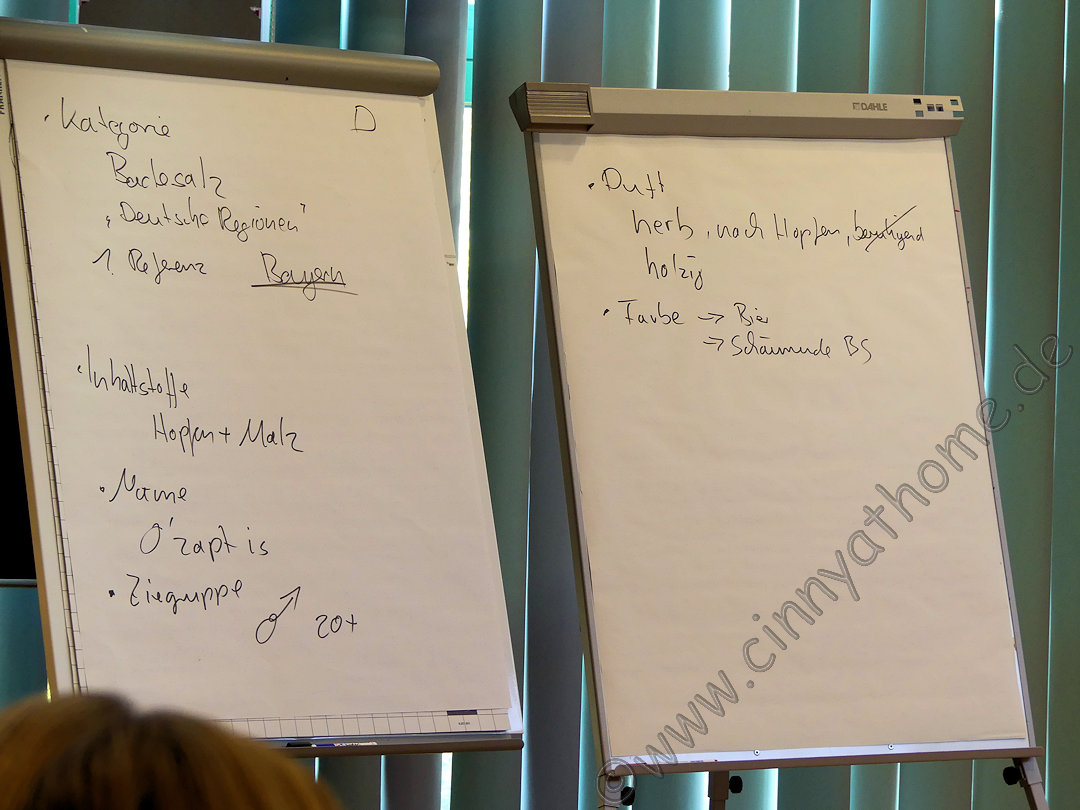 • Kategorie D
Badesalz
„Deutsche Regionen"
1. Referenz Bayern
• Inhaltstoffe
Hopfen + Malz
• Name
O'zapt is
• Zielgruppe
♂ 20+
DAHLE
• Duft
herb, nach Hopfen, beruhigend
holzig
• Farbe → Bier
→ Schäumende BS
©www.cinnyathome.de